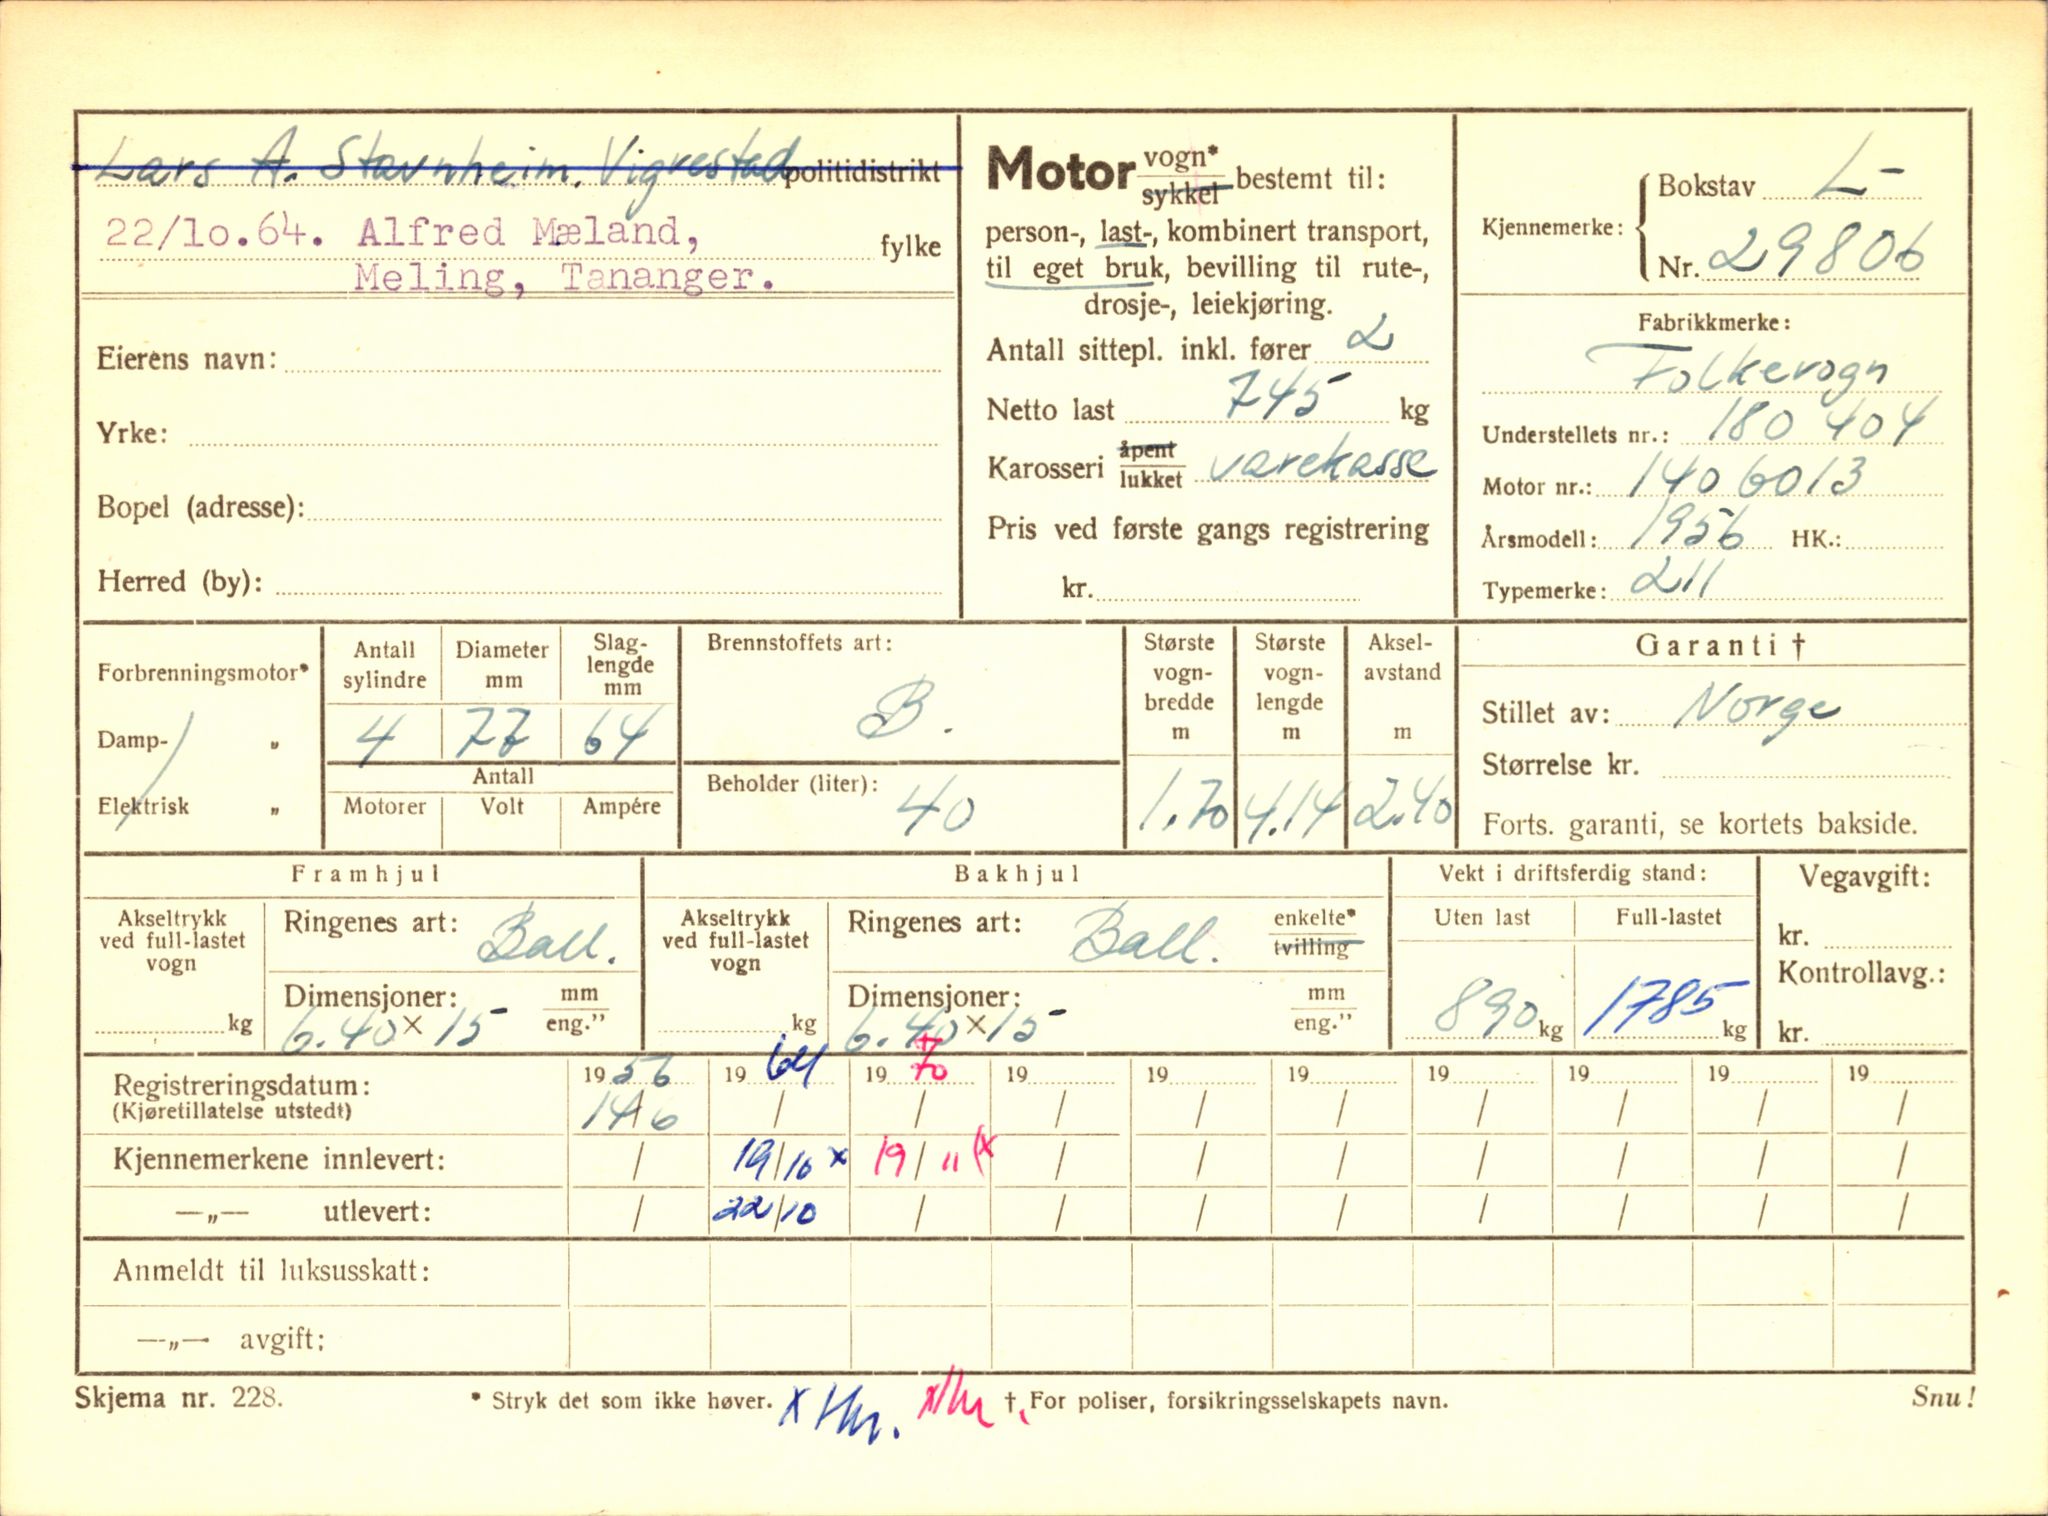 Lars A. Stavnheim. Vigrestad politidistrikt
22/10.64. Alfred Mæland,
fylke
Meling, Tananger.
Eierens navn:
Yrke:
Bopel (adresse):
Herred (by):
Motor vogn* sykkel bestemt til:
person-, last-, kombinert transport,
til eget bruk, bevilling til rute-,
drosje-, leiekjøring.
Antall sittepl. inkl. fører 2
Netto last 745 kg
Karosseri åpent lukket varekasse
Pris ved første gangs registrering
kr.
Kjennemerke: Bokstav L-
Nr. 29806
Fabrikkmerke:
Folkevogn
Understellets nr.: 180 404
Motor nr.: 1406013
Årsmodell: 1956 HK.:
Typemerke: 211
Forbrenningsmotor*
Damp- „
Elektrisk „
Antall sylindre
4
Diameter mm
77
Slag-
lengde
mm
64
Antall
Motorer Volt Ampére
Brennstoffets art:
B.
Beholder (liter):
40
Største
vogn-
bredde
m
1.70
Største
vogn-
lengde
m
4.14
Aksel-
avstand
m
2.40
Garanti †
Stillet av: Norge
Størrelse kr.
Forts. garanti, se kortets bakside.
Framhjul
Akseltrykk
ved full-lastet
vogn
kg
Ringenes art: Ball.
Dimensjoner: mm
6.40 × 15 eng.”
Bakhjul
Akseltrykk
ved full-lastet
vogn
kg
Ringenes art: Ball. enkelte* tvilling
Dimensjoner: mm
6.40 × 15 eng.”
Vekt i driftsferdig stand:
Uten last Full-lastet
890 kg 1785 kg
Vegavgift:
kr.
Kontrollavg.:
kr.
Registreringsdatum: 1956 1964 1970 19 19 19 19 19 19 19
(Kjøretillatelse utstedt) 14/6 / / / / / / / / /
Kjennemerkene innlevert: / 19/10 x 19/11 (x / / / / / / /
—„— utlevert: / 22/10 / / / / / / / /
Anmeldt til luksusskatt:
—„— avgift:
Skjema nr. 228. * Stryk det som ikke høver. † For poliser, forsikringsselskapets navn. Snu!